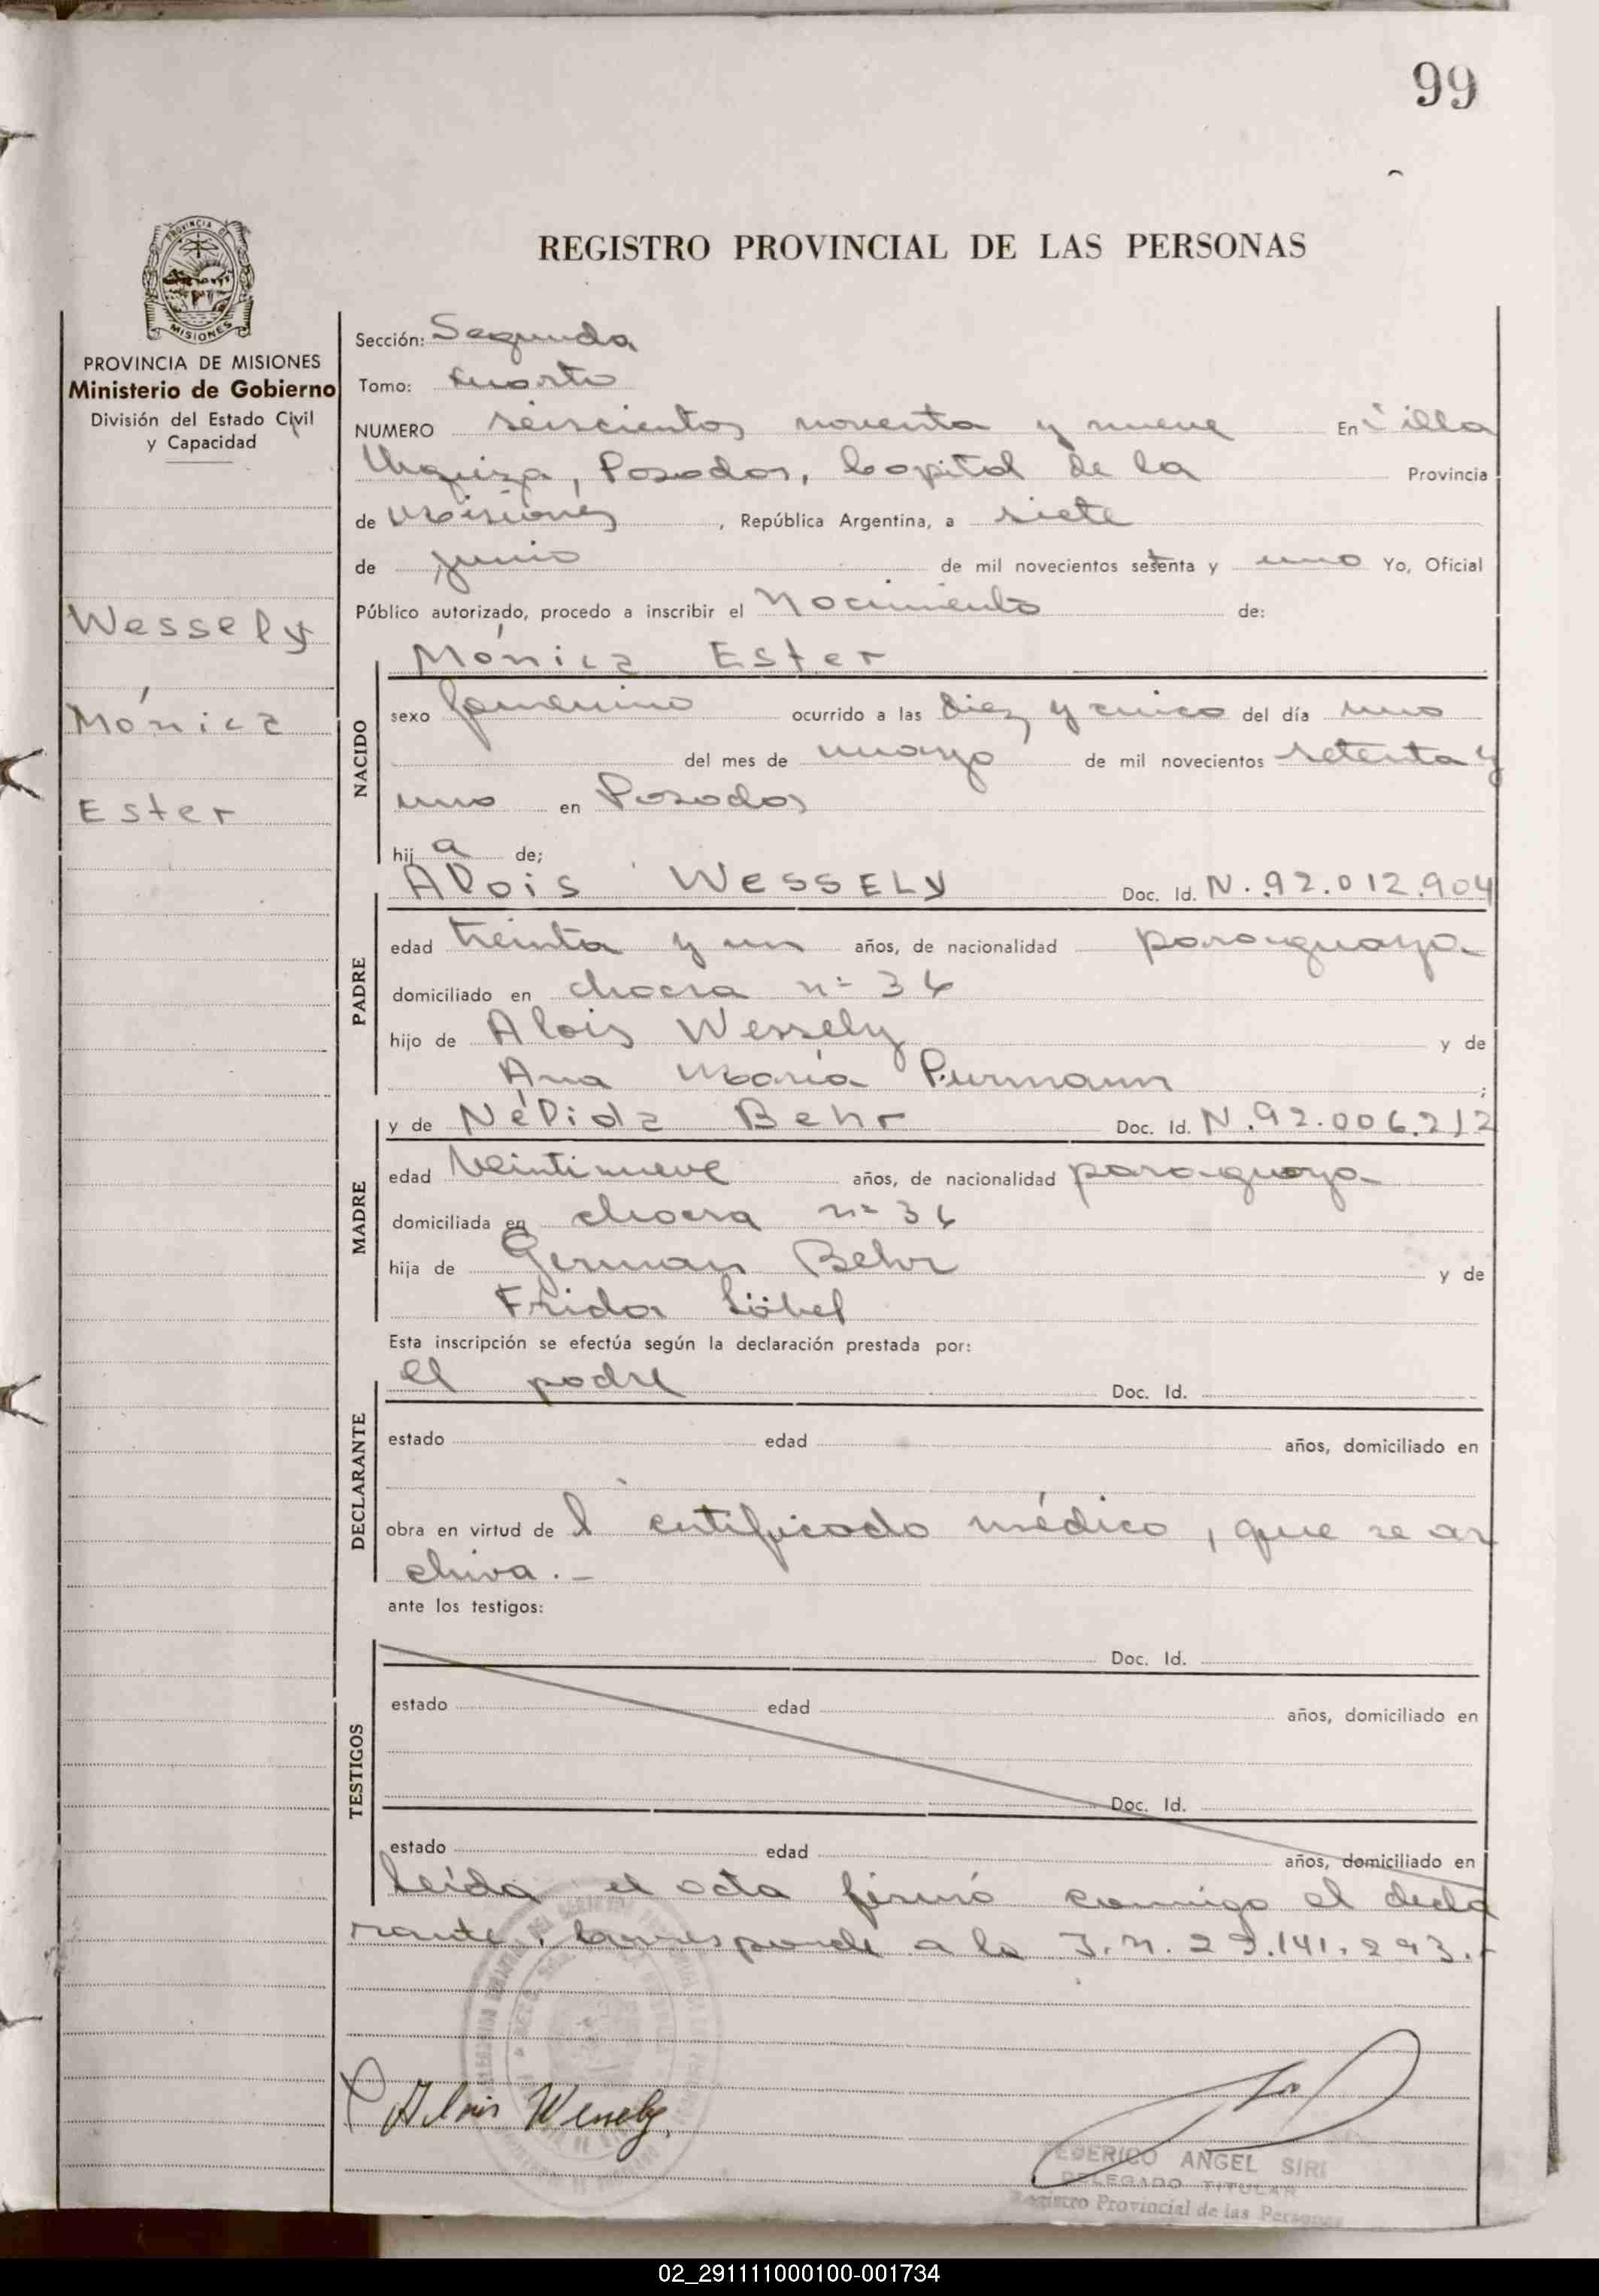 99
REGISTRO PROVINCIAL DE LAS PERSONAS
PROVINCIA DE MISIONES
Ministerio de Gobierno
División del Estado Civil
y Capacidad
Wessely
Mónica
Ester
Sección: Segunda
Tomo: Cuarto
NUMERO seiscientos noventa y nueve En Villa
Urquiza, Posadas, Capital de la Provincia
de Misiones, República Argentina, a siete
de junio de mil novecientos setenta y uno Yo, Oficial
Público autorizado, procedo a inscribir el Nacimiento de:
Mónica Ester
NACIDO
sexo femenino ocurrido a las diez y cinco del día uno
del mes de mayo de mil novecientos setenta y
uno en Posadas
hija de;
Alois WESSELY Doc. Id. N.92.012.904
PADRE
edad treinta y un años, de nacionalidad paraguaya
domiciliado en chacra nº 36
hijo de Alois Wessely y de
Ana María Purmann ;
y de Nélida Behr Doc. Id. N.92.006.212
MADRE
edad veintinueve años, de nacionalidad paraguaya
domiciliada en chacra nº 36
hija de German Behr y de
Frida Löbel
Esta inscripción se efectúa según la declaración prestada por:
el padre Doc. Id.
DECLARANTE
estado edad años, domiciliado en
obra en virtud de l certificado médico, que se ar
chiva.-
ante los testigos:
Doc. Id.
TESTIGOS
estado edad años, domiciliado en
Doc. Id.
estado edad años, domiciliado en
Leída el acta firmó conmigo el decla
rante. Corresponde a la I.N. 23.141.293.-
Alois Wessely
FEDERICO ANGEL SIRI
DELEGADO TITULAR
Registro Provincial de las Personas
02_291111000100-001734